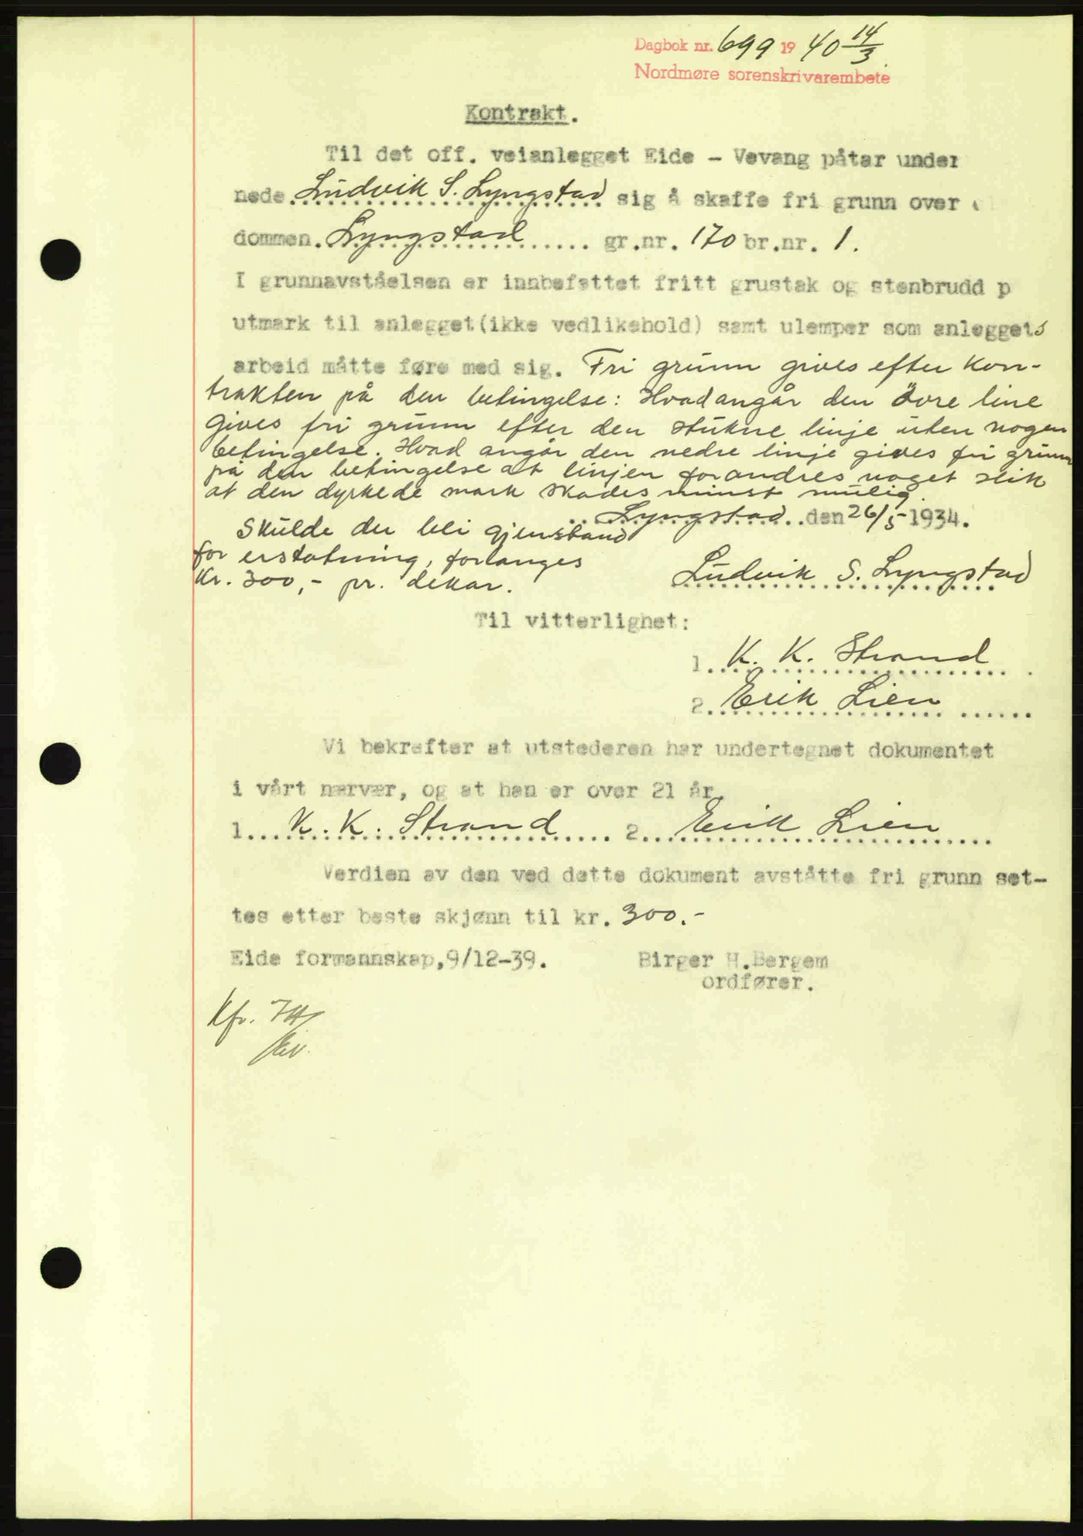 Dagbok nr. 699 1940 14/3
Nordmøre sorenskrivarembete
Kontrakt.
Til det off. veianlegget Eide - Vevang påtar under
nede. Ludvik S. Lyngstad sig å skaffe fri grunn over
dommen. Lyngstad gr.nr. 170 br.nr. 1.
I grunnavståelsen er innbefattet fritt grustak og stenbrudd p
utmark til anlegget(ikke vedlikehold) samt ulemper som anleggets
arbeid måtte føre med sig. Fri grunn gives efter kon-
trakten på den betingelse: Hvad angår den övre line
gives fri grunn efter den stukne linje uten nogen
betingelse. Hvad angår den nedre linje gives fri grunn
på den betingelse at linjen forandres noget slik
at den dyrkede mark skades minst mulig.
Lyngstad den 26/5-1934.
Skulde der bli gjenstand
for erstatning, forlanges
kr. 300,- pr. dekar.
Ludvik S. Lyngstad
Til vitterlighet:
1. K. K. Strand
2. Erik Lien
Vi bekrefter at utstederen har undertegnet dokumentet
i vårt nærvær, og at han er over 21 år.
1. K. K. Strand 2. Erik Lien
Verdien av den ved dette dokument avståtte fri grunn set-
tes etter beste skjønn til kr. 300.-
Eide formannskap,9/12-39. Birger H.Bergem
ordfører.
Kfr.